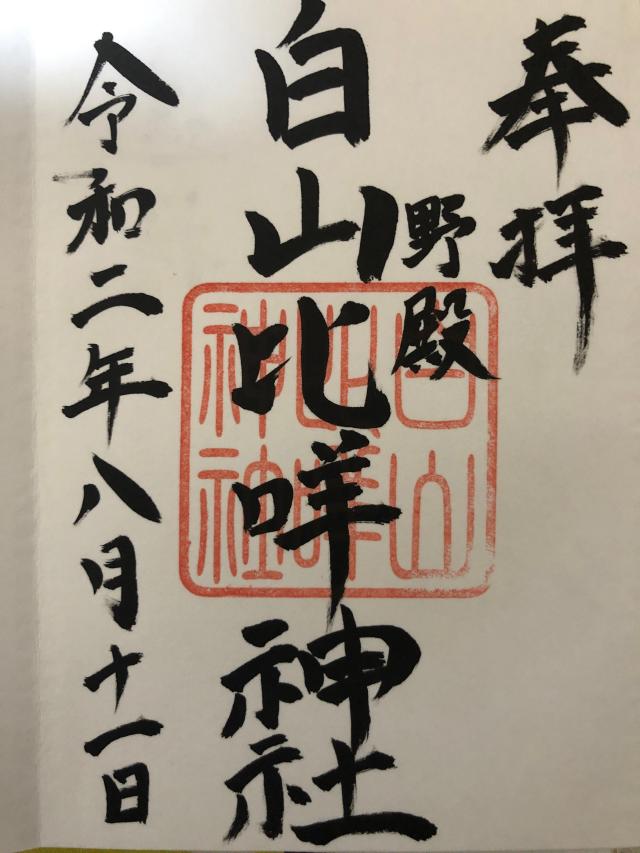 奉拝
野殿
白山比咩神社
令和二年八月十一日
白山
比咩
神社